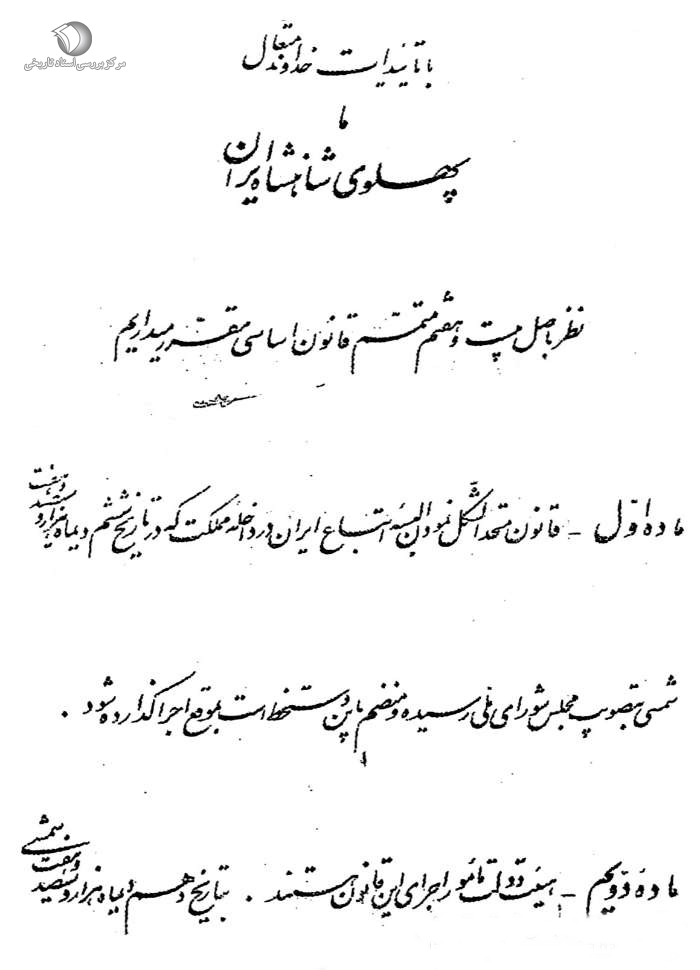 مرکز بررسی اسناد تاریخی
با تائیدات خداوند متعال
ما
پهلوی شاهنشاه ایران
نظر باصل بیست و هفتم متمم قانون اساسی مقرر میداریم
ماده اول - قانون متحدالشکل نمودن البسه اتباع ایران در داخله مملکت که در تاریخ ششم دیماه یکهزار و سیصد و هفت
شمسی بتصویب مجلس شورای ملی رسیده و منضم باین دستخط است بموقع اجرا گذارده شود .
ماده دویم - هیئت دولت مأمور اجرای این قانون هستند . بتاریخ دهم دیماه یکهزار و سیصد و هفت شمسی